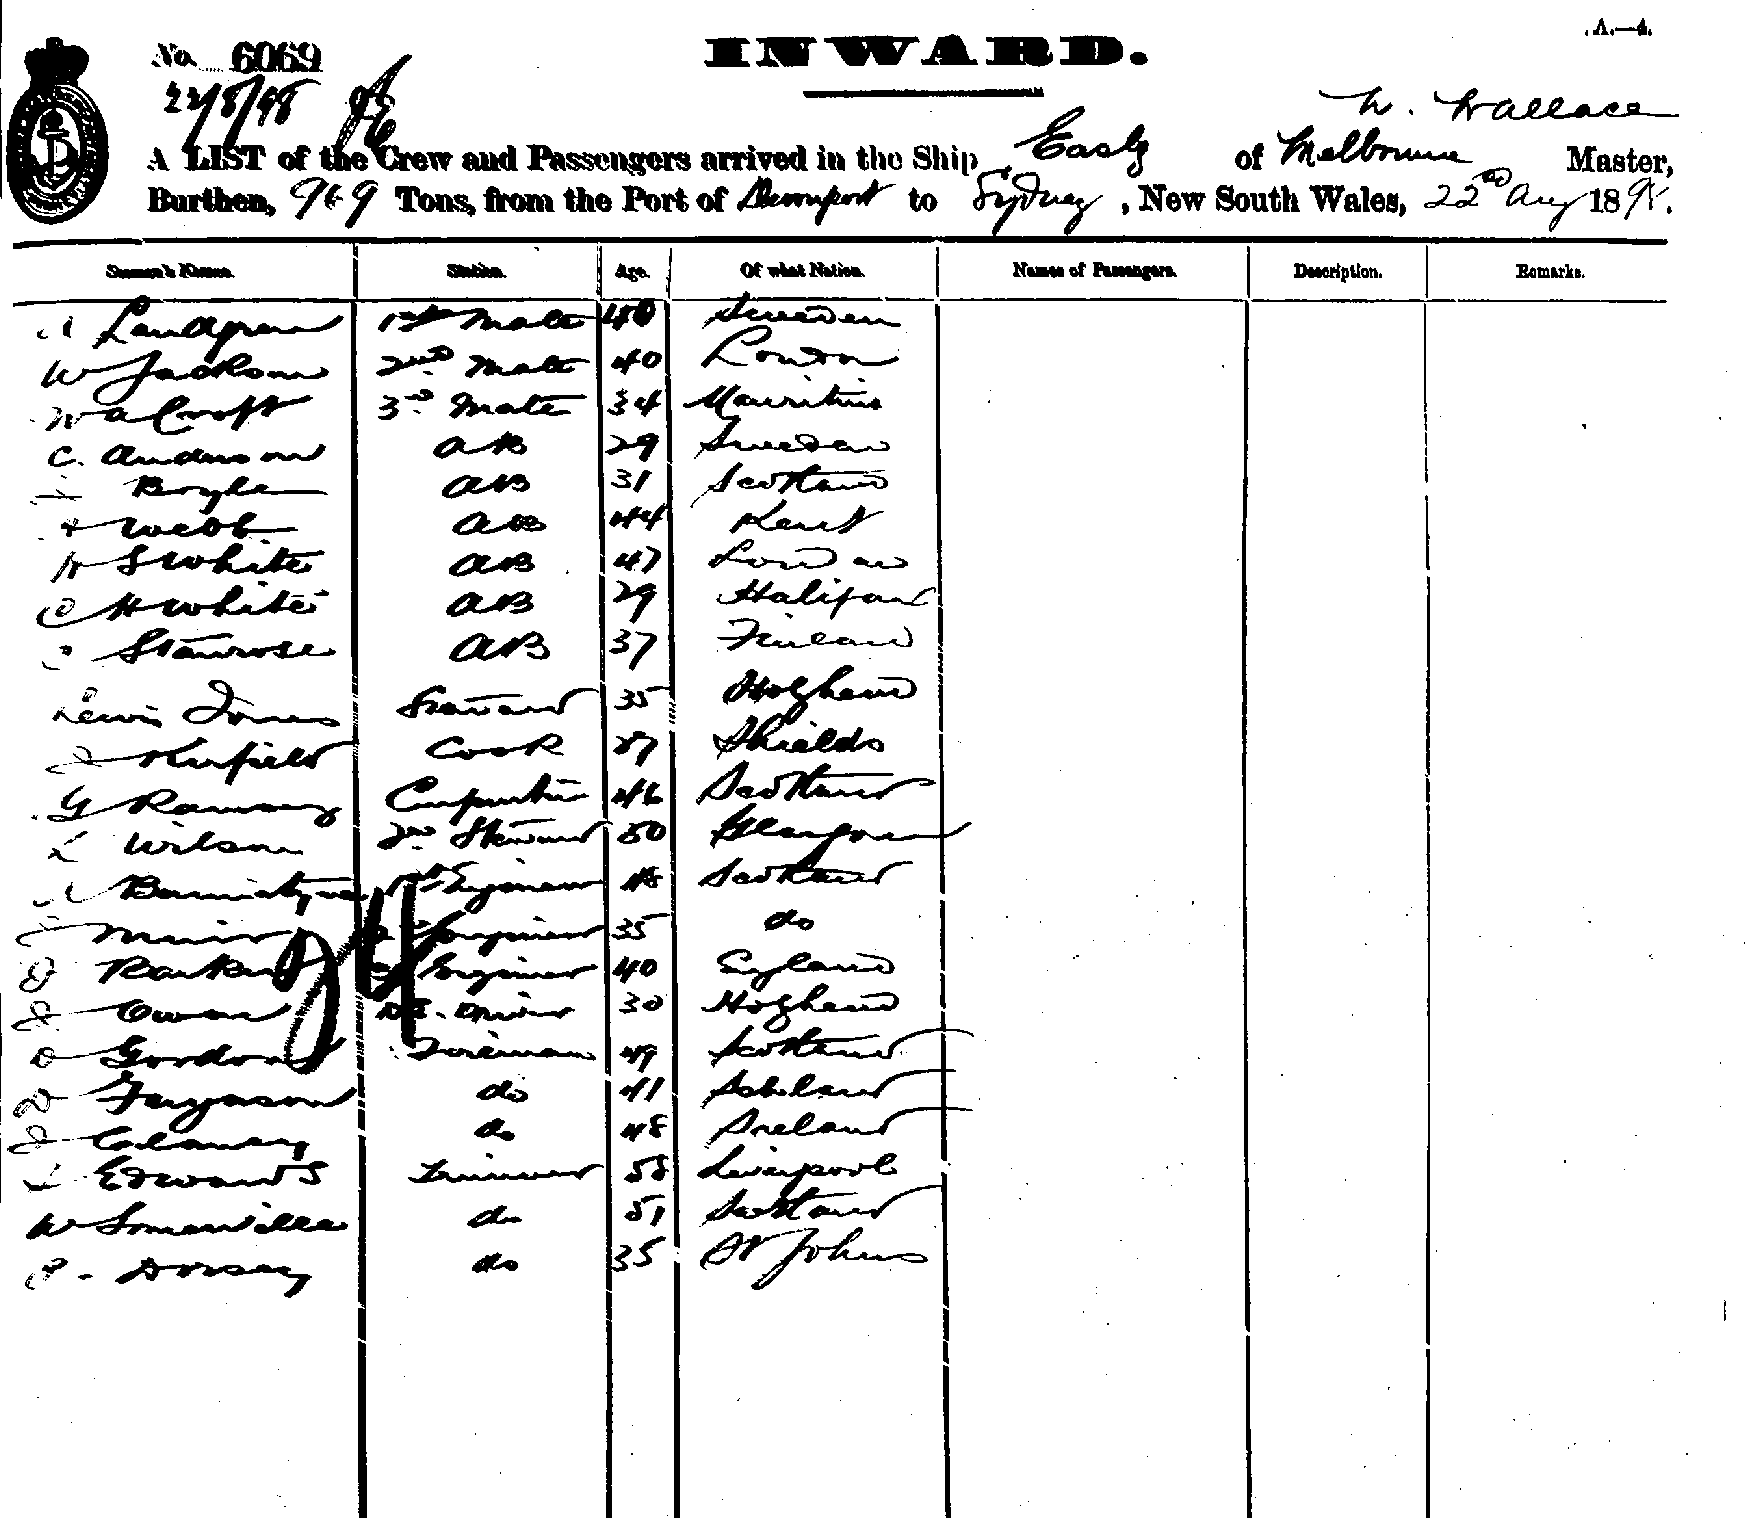 A.—4.
No. 6069
INWARD.
22/8/98
W. Wallace
A LIST of the Crew and Passengers arrived in the Ship Easby of Melbourne Master,
Burthen, 969 Tons, from the Port of Devonport to Sydney, New South Wales, 22nd Aug 1898.
Seamen's Names. Station. Age. Of what Nation. Names of Passengers. Description. Remarks.
Landgren 1st Mate 40 Sweden
W Jackson 2nd Mate 40 London
W A Croft 3rd Mate 34 Mauritius
C. Anderson AB 29 Sweden
Boyle AB 31 Scotland
Webb AB 44 Kent
W S White AB 47 London
C H White AB 29 Halifax
AB 37 Finland
Lewis Jones Steward 35 Holyhead
Cook 37 Shields
G Ramsay Carpenter 46 Scotland
Wilson 2nd Steward 50 Glasgow
1st Engineer 48 Scotland
Muir Engineer 35 do
24
Engineer 40 England
J Owen Driver 30 Holyhead
D Gordon Fireman 49 Scotland
D Ferguson do 41
J Clancy do 48 Ireland
Edwards Trimmer Liverpool
W Somerville do 51 Scotland
P. Dorsay do 35 St Johns